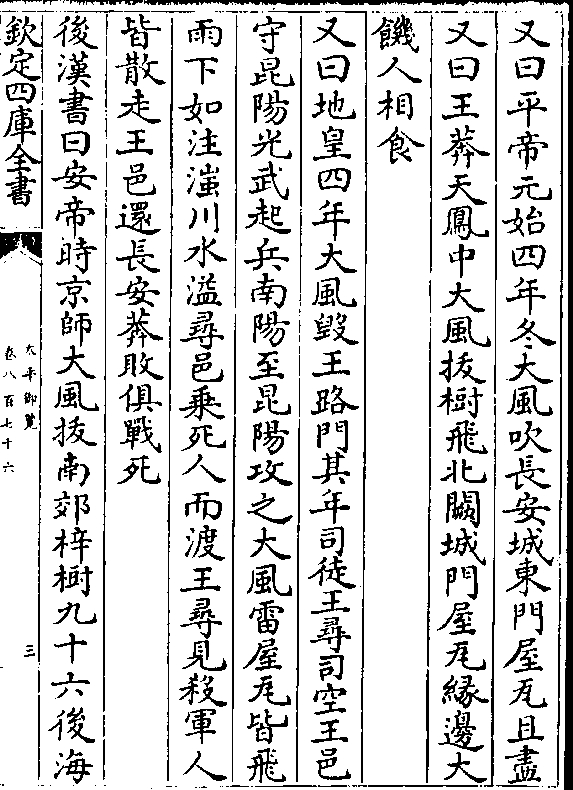 又曰平帝元始四年冬大風吹長安城東門屋瓦且盡
又曰王莽天鳳中大風拔樹飛北闕城門屋瓦緣邊大
饑人相食
又曰地皇四年大風毀王路門其年司徒王尋司空王邑
守昆陽光武起兵南陽至昆陽攻之大風雷屋瓦皆飛
雨下如注滍川水溢尋邑乗死人而渡王尋見殺軍人
皆散走王邑還長安莽敗俱戰死
後漢書曰安帝時京師大風拔南郊梓樹九十六後海
欽定四庫全書
太平御覽
卷八百七十六
三